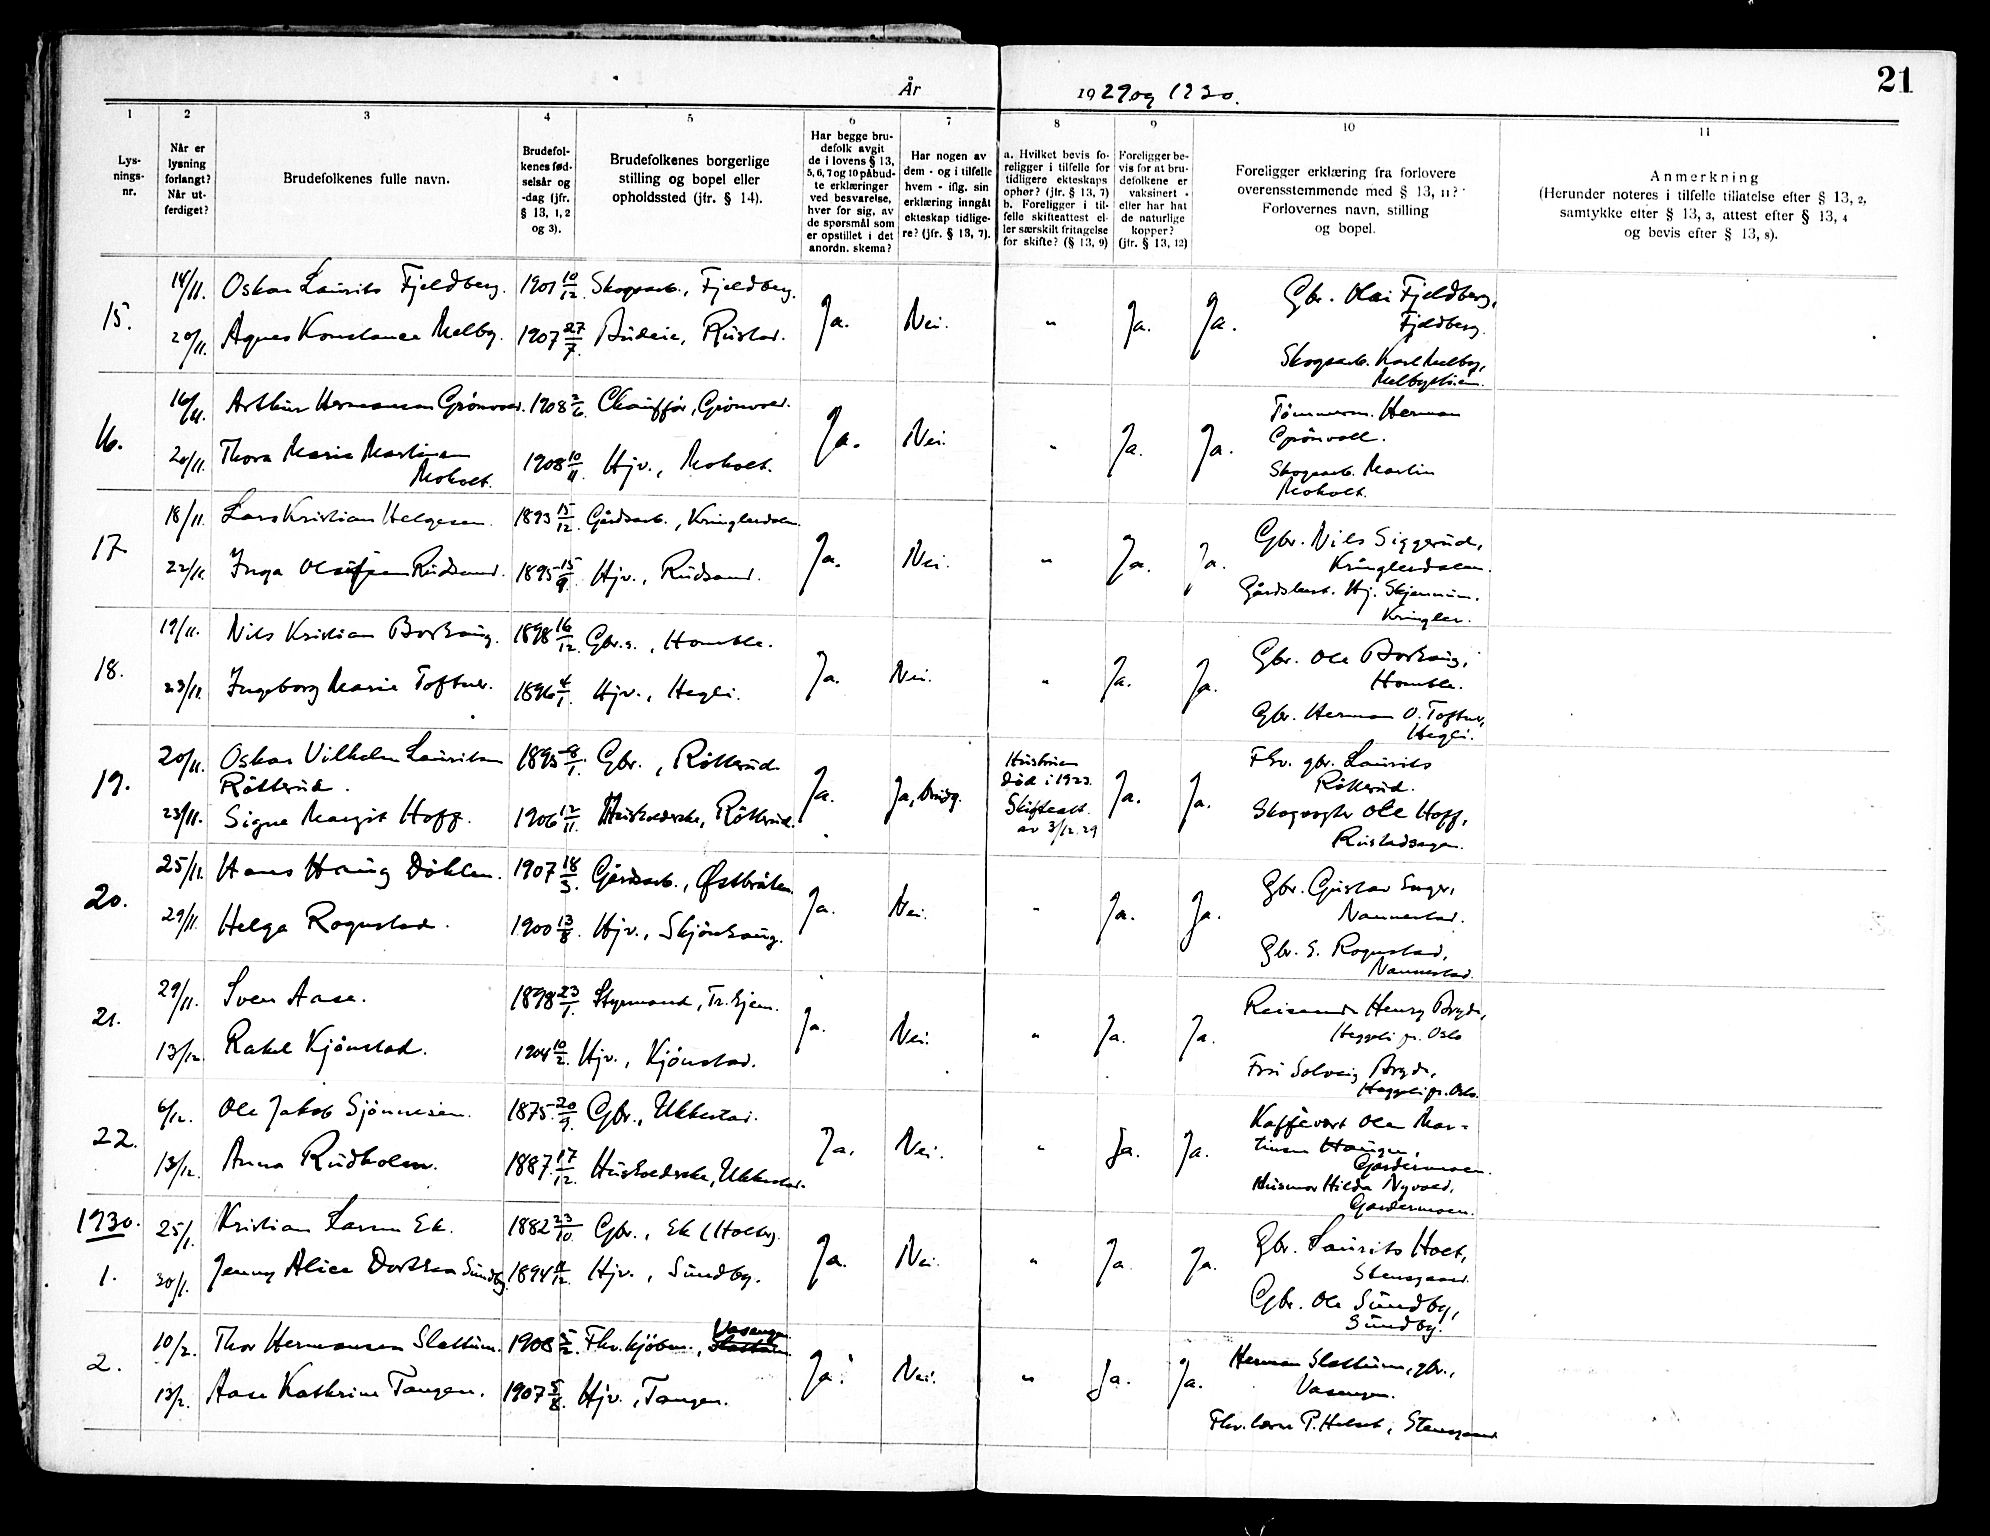 21
År 1929 og 1930.
1 2 3 4 5 6 7 8 9 10 11
Lys-
nings-
nr.
Når er
lysning
forlangt?
Når ut-
ferdiget?
Brudefolkenes fulle navn.
Brudefol-
kenes fød-
selsår og
-dag (jfr.
§ 13, 1, 2
og 3).
Brudefolkenes borgerlige
stilling og bopel eller
opholdssted (jfr. § 14).
Har begge bru-
defolk avgit
de i lovens § 13,
5, 6, 7 og 10 påbud-
te erklæringer
ved besvarelse,
hver for sig, av
de spørsmål som
er opstillet i det
anordn. skema?
Har nogen av
dem - og i tilfelle
hvem - iflg. sin
erklæring inngått
ekteskap tidlige-
re? (jfr. § 13, 7).
a. Hvilket bevis fo-
religger i tilfelle for
tidligere ekteskaps
ophør? (jfr. § 13, 7)
b. Foreligger i til-
felle skifteattest el-
ler særskilt fritagelse
for skifte? (§ 13, 9)
Foreligger be-
vis for at bru-
defolkene er
vaksinert -
eller har hat
de naturlige
kopper?
(jfr. § 13, 12)
Foreligger erklæring fra forlovere
overensstemmende med § 13, 11?
Forlovernes navn, stilling
og bopel.
Anmerkning
(Herunder noteres i tilfelle tillatelse efter § 13, 2,
samtykke efter § 13, 3, attest efter § 13, 4
og bevis efter § 13, 8).
15.
14/11. Oskar Laurits Fjeldberg. 1901 10/12. Skogsarb., Fjeldberg.
20/11. Agnes Konstance Melby. 1907 27/7. Budeie, Rustad.
Ja. Nei. " Ja. Ja.
Gbr. Olai Fjeldberg,
Fjeldberg.
Skogsarb. Karl Melby,
Melbystuen.
16.
16/11. Arthur Hermansen Grönvold. 1908 2/6. Chauffør, Grönvold.
20/11. Thora Marie Martinsen
Moholt. 1908 10/11. Hjv., Moholt.
Ja. Nei. " Ja. Ja.
Tömmerm. Herman
Grönvoll.
Skogsarb. Martin
Moholt.
17.
18/11. Lars Kristian Helgesen. 1893 15/12. Gårdsarb., Kringlerdalen.
22/11. Inga Rudsand. 1895 15/9. Hjv., Rudsand.
Ja. Nei. " Ja. Ja.
Gbr. Nils Siggerud,
Kringlerdalen.
Gårdsbest. Hj. Skjennum.
Kringler.
18.
19/11. Nils Kristian Borhaug. 1898 16/12. Gbr.s., Homble.
23/11. Ingeborg Marie Toftner. 1896 4/1. Hjv., Hegli.
Ja. Nei. " Ja. Ja.
Gbr. Ole Borhaug,
Homble.
Gbr. Herman O. Toftner,
Hegli.
19.
20/11. Oskar Vilhelm Lauritsen
Rötterud. 1895 8/1. Gbr., Rötterud.
23/11. Signe Margit Hoff. 1906 12/11. Husholderske, Rötterud.
Ja. Ja, brudg.
Hustruen
död i 1923.
Skifteatt.
av 3/12.29
Ja. Ja.
Fhv. gbr. Laurits
Rötterud.
Skogvogter Ole Hoff,
Rustadsagen.
20.
25/11. Hans Haug Döhlen. 1907 18/3. Gårdsarb., Østbråten.
29/11. Helga Rognstad. 1900 13/8. Hjv., Skjönhaug.
Ja. Nei. " Ja. Ja.
Gbr. Gustav Enger,
Nannestad.
Gbr. E. Rognstad,
Nannestad.
21.
29/11. Sven Aase. 1898 23/1. Styrmand, Tr.hjem.
13/12. Rakel Kjönstad. 1904 10/2. Hjv., Kjönstad.
Ja. Nei. " Ja. Ja.
Reisende Henry Bryde,
Heggeli pr. Oslo
Fru Solveig Bryde,
Heggeli pr. Oslo.
22.
6/12. Ole Jakob Sjönnesen. 1875 20/9. Gbr., Ukkestad.
13/12. Anna Rudholm. 1887 17/12. Husholderske, Ukkestad.
Ja. Nei. " Ja. Ja.
Kaffevert Olen Mar-
tinsen Haugen,
Gardermoen.
Husmor Hilda Nyvold,
Gardermoen.
1930.
1.
25/1. Kristian Larsen Ek. 1882 23/10. Gbr., Ek (Holter).
30/1. Jenny Alice Dorthea Sundby. 1894 11/12. Hjv., Sundby.
Ja. Nei. " Ja. Ja.
Gbr. Laurits Holt,
Stensgaard.
Gbr. Ole Sundby,
Sundby.
2.
10/2. Thor Hermansen Slattum. 1908 5/2. Fhv. kjöbm., Vasengen
Slattum
13/2. Aase Kathrine Tangen. 1907 5/8. Hjv., Tangen.
Ja. Nei. " Ja. Ja.
Herman Slattum, gbr.,
Vasengen.
Fhv. lærer P. Helset, Stensgaard